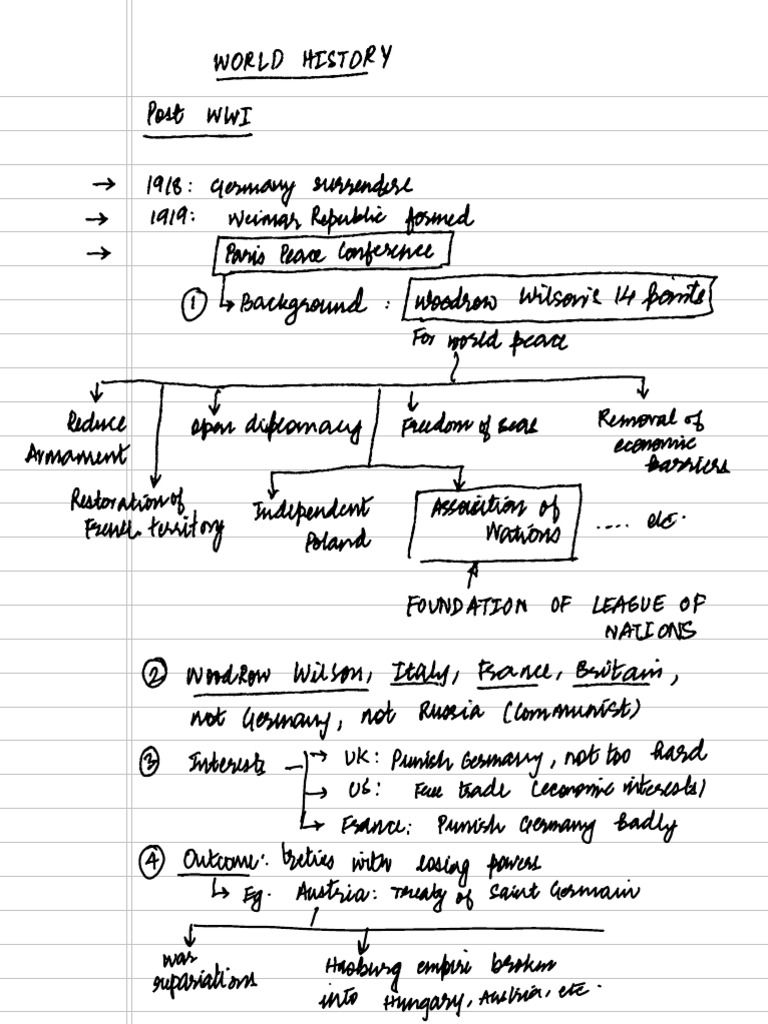 WORLD HISTORY
Post WWI
→ 1918: Germany surrenders
→ 1919: Weimar Republic formed
→ Paris Peace Conference
① ↳ Background : Woodrow Wilson's 14 points
For world peace
Reduce
Armament
open diplomacy
Freedom of seas
Removal of
economic
barriers
Restoration of
French territory
Independent
Poland
Association of
Nations
.... etc.
FOUNDATION OF LEAGUE OF
NATIONS
② Woodrow Wilson, Italy, France, Britain,
not Germany, not Russia (Communist)
③ Interests → UK: Punish Germany, not too hard
→ US: Free trade (economic interests)
↳ France: Punish Germany badly
④ Outcome: treties with losing powers
↳ Eg. Austria: Treaty of Saint Germain
war
repariations
Hasburg empire broken
into Hungary, Austria, etc.